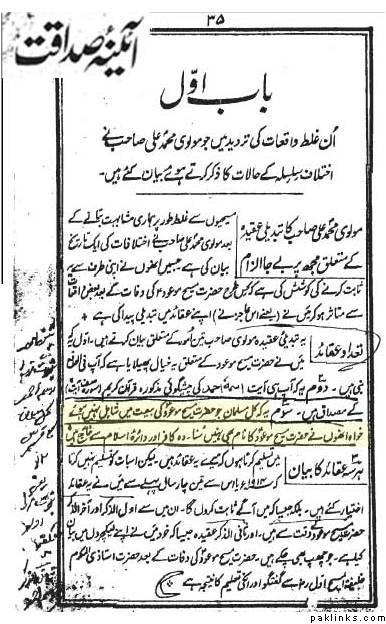 ۳۵
آئینۂ صداقت
باب اوّل
اُن غلط واقعات کی تردید میں جو مولوی محمد علی صاحب نے
اختلاف سلسلہ کے حالات کا ذکر کرتے ہوئے بیان کئے ہیں۔
مولوی محمد علی صاحب کا تبدیلی عقیدہ
کے متعلق مجھ پر بے جا الزام
مسیحیوں سے غلط طور پر ہماری مشابہت بتانے کے
بعد مولوی محمد علی صاحب نے اختلافات کی ایک تاریخ
بیان کی ہے جس میں انھوں نے اپنی طرف سے یہ
ثابت کرنے کی کوشش کی ہے کہ کس طرح حضرت مسیح موعود کی وفات کے بعد بعض واقعات
سے متاثر ہو کر میں نے (یعنے اس عاجز نے) اپنے عقائد میں تبدیلی پیدا کی ہے
تعداد عقائد
یہ تبدیلی عقیدہ مولوی صاحب تین امور کے متعلق بیان کرتے ہیں۔ اوّل یہ کہ
میں نے حضرت مسیح موعود کے متعلق یہ خیال پھیلایا ہے کہ آپ فی الواقع
نبی ہیں۔ دوم یہ کہ آپ ہی آیت اسمہ احمد کی پیشگوئی مذکورہ قرآن کریم
کے مصداق ہیں۔ سوم یہ کہ کل مسلمان جو حضرت مسیح موعود کی بیعت میں شامل نہیں ہوئے
خواہ انھوں نے حضرت مسیح موعود کا نام بھی نہیں سنا۔ وہ کافر اور دائرۂ اسلام سے خارج ہیں
ہر سہ عقائد کا بیان
میں تسلیم کرتا ہوں کہ میرے یہ عقائد ہیں۔ لیکن اس بات کو تسلیم نہیں کرتا کہ
۱۹۱۴ء یا اس سے تین چار سال پہلے سے میں نے یہ عقائد
اختیار کئے ہیں۔ بلکہ جیسا کہ میں آگے ثابت کروں گا۔ ان میں سے اول الذکر اور آخر الذکر
حضرت مسیح موعود کے وقت سے ہیں۔ اور ثانی الذکر عقیدہ جیسا کہ خود میں نے اپنے لیکچروں میں بیان
کیا ہے۔ جو چھپ بھی چکے ہیں۔ حضرت مسیح موعود کی وفات کے بعد حضرت استاذی المکرم
خلیفۃ المسیح اول سے گفتگو اور انکی تعلیم کا نتیجہ ہے
paklinks.com